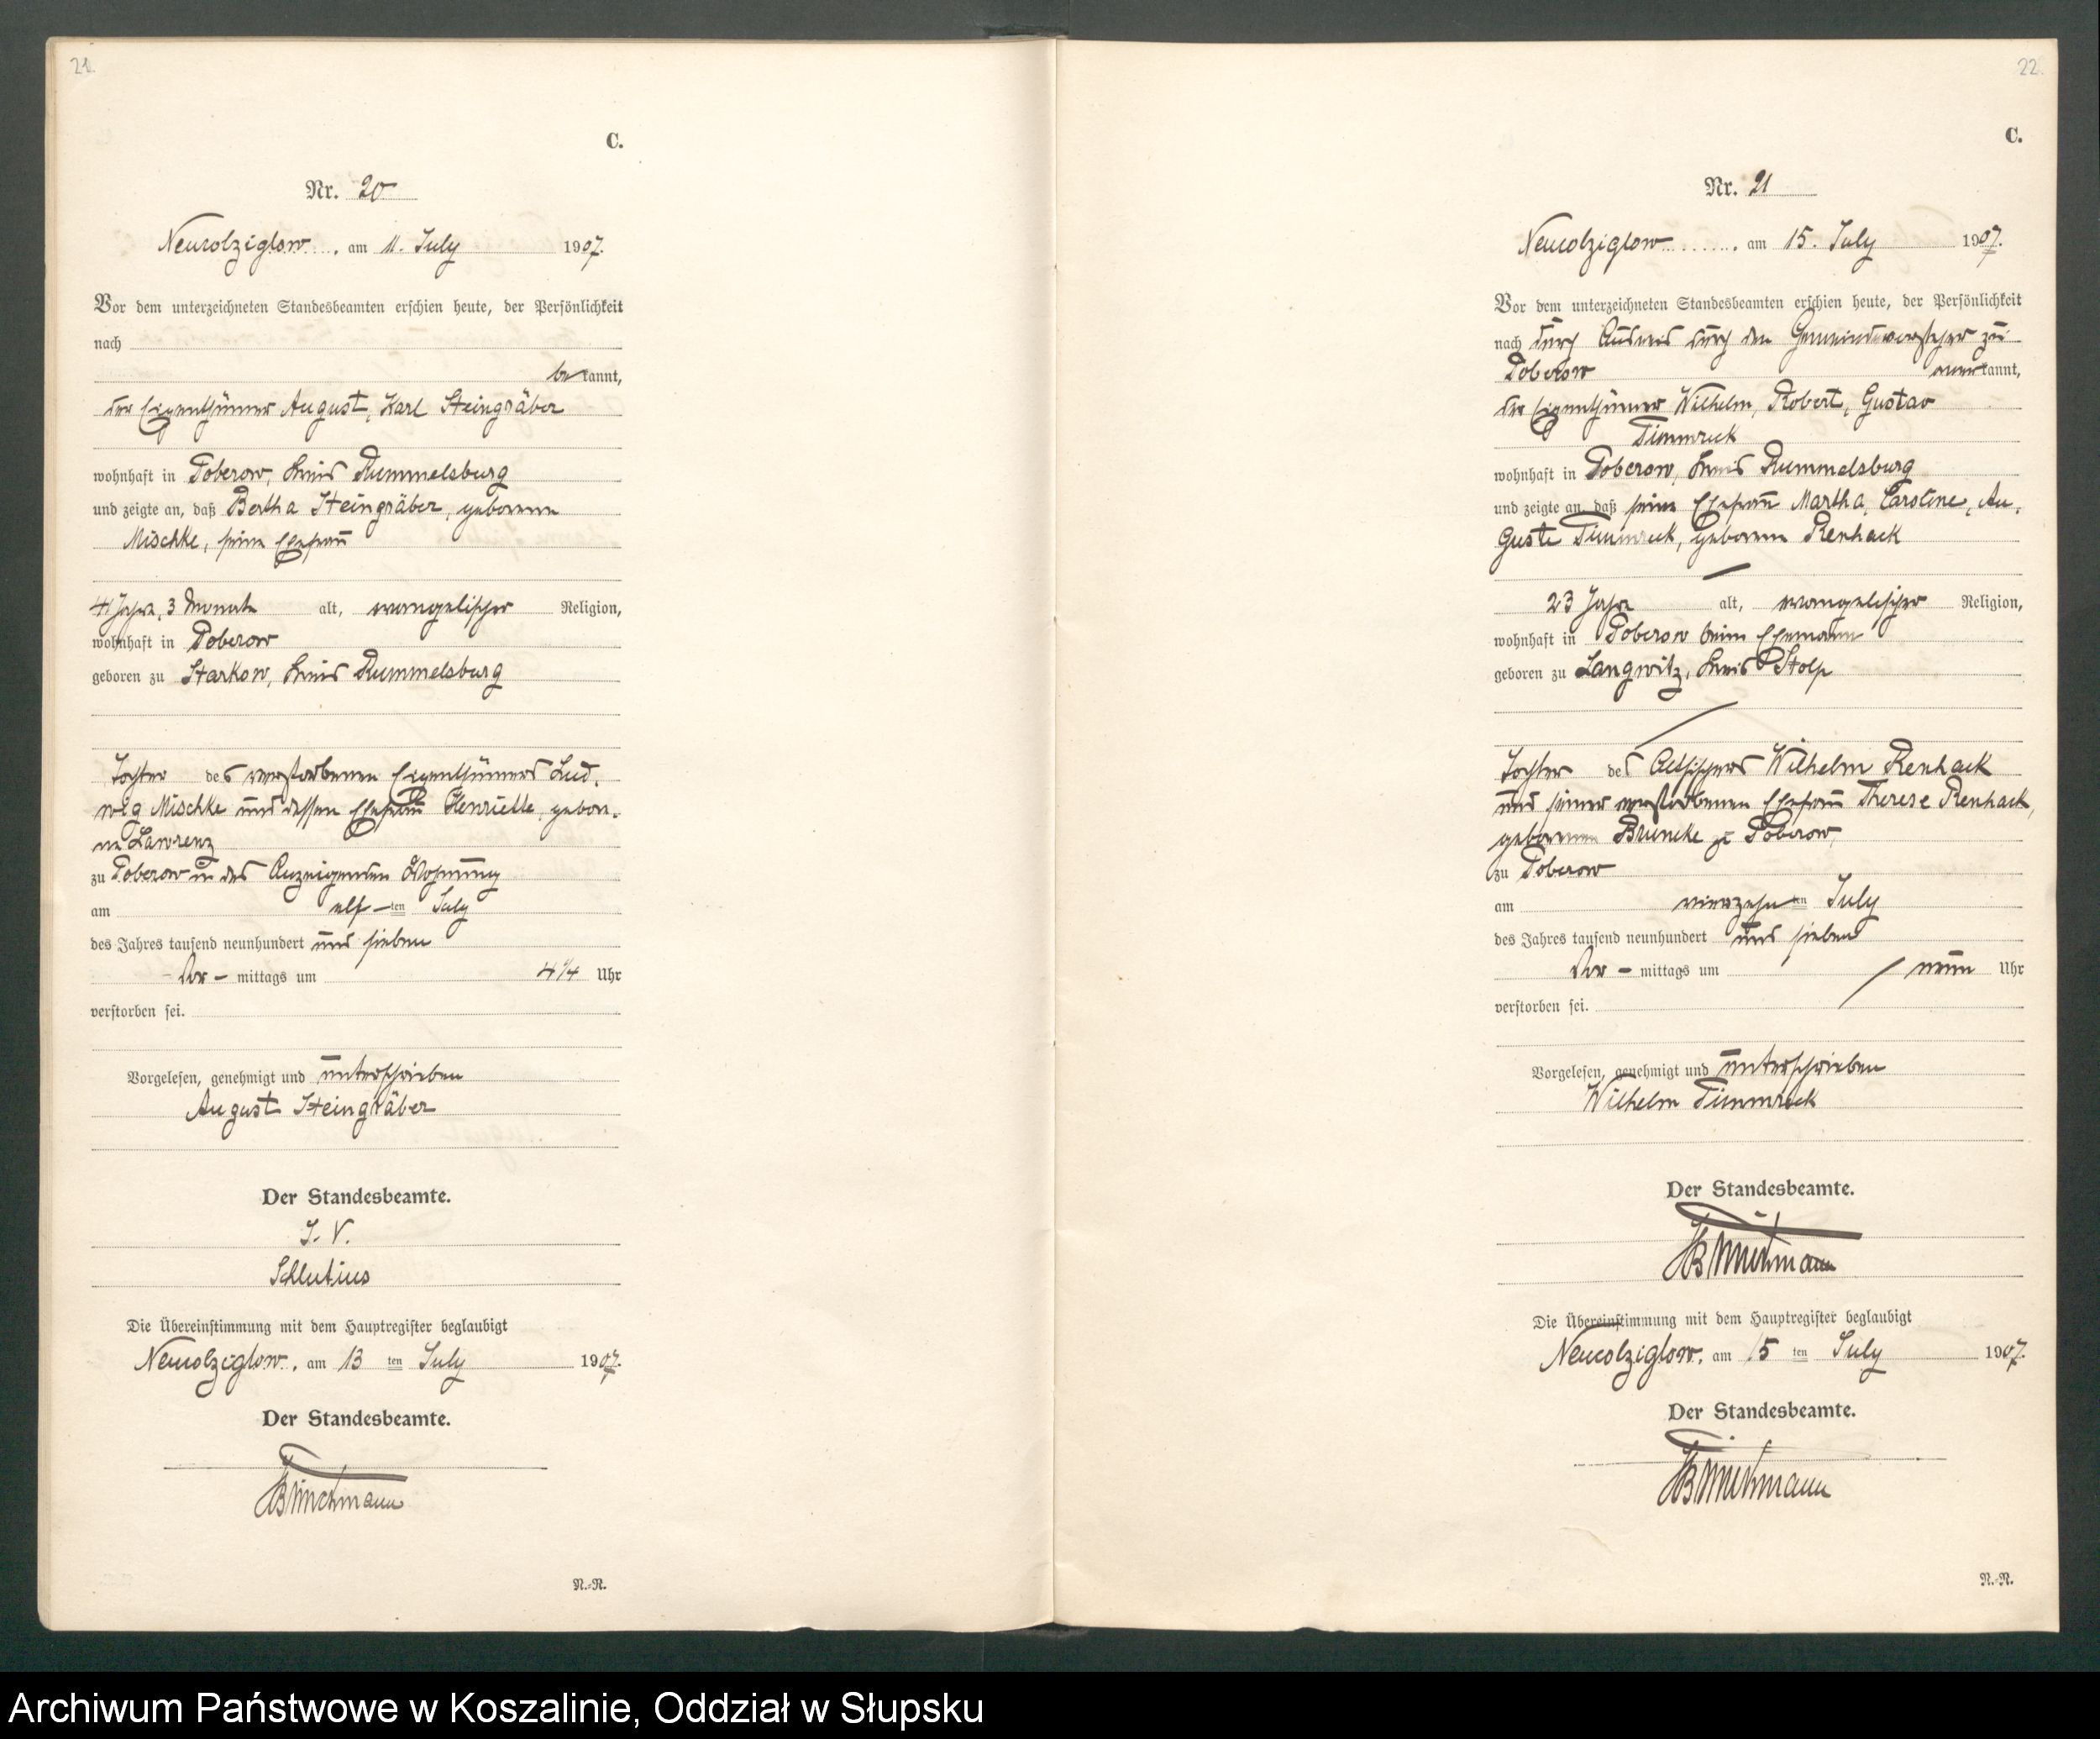 21.
C.
Nr. 20
Neukolziglow, am 11. July 1907.
Vor dem unterzeichneten Standesbeamten erschien heute, der Persönlichkeit
nach
bekannt,
der Eigenthümer August, Karl Steingräber
wohnhaft in Poberow, Kreis Rummelsburg
und zeigte an, daß Bertha Steingräber, geborene
Mischke, seine Ehefrau
41 Jahre, 3 Monate alt, evangelischer Religion,
wohnhaft in Poberow
geboren zu Starkow, Kreis Rummelsburg
Tochter des verstorbenen Eigenthümers Lud,
wig Mischke und dessen Ehefrau Henriette, gebore,
ne Lawrenz
zu Poberow in des Anzeigenden Wohnung
am elf-ten July
des Jahres tausend neunhundert und sieben
Vor-mittags um 4 1/4 Uhr
verstorben sei.
Vorgelesen, genehmigt und unterschrieben
August Steingräber
Der Standesbeamte.
I. V.
Schlutius
Die Übereinstimmung mit dem Hauptregister beglaubigt
Neukolziglow, am 13ten July 1907.
Der Standesbeamte.
N.-R.
22.
C.
Nr. 21
Neukolziglow, am 15. July 1907.
Vor dem unterzeichneten Standesbeamten erschien heute, der Persönlichkeit
nach durch Ausweis durch den Gemeindevorsteher zu
Poberow anerkannt,
der Eigenthümer Wilhelm, Robert, Gustav
Timmreck
wohnhaft in Poberow, Kreis Rummelsburg
und zeigte an, daß seine Ehefrau Martha, Caroline, Au,
guste Timmreck, geborene Renhack
23 Jahre alt, evangelischer Religion,
wohnhaft in Poberow beim Ehemann
geboren zu Langwitz, Kreis Stolp
Tochter des Altsitzers Wilhelm Renhack
und seiner verstorbenen Ehefrau Therese Renhack,
geborenen Bruncke zu Poberow,
zu Poberow
am vierzehnten July
des Jahres tausend neunhundert und sieben
Vor-mittags um neun Uhr
verstorben sei.
Vorgelesen, genehmigt und unterschrieben
Wilhelm Timmreck
Der Standesbeamte.
Die Übereinstimmung mit dem Hauptregister beglaubigt
Neukolziglow, am 15ten July 1907.
Der Standesbeamte.
N.-R.
Archiwum Państwowe w Koszalinie, Oddział w Słupsku